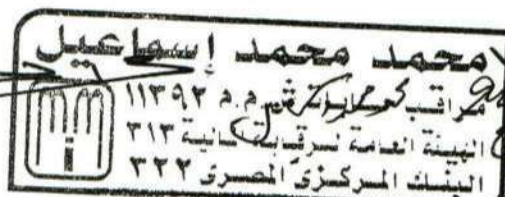 محمد محمد إسماعيل
مراقب م.م ١١٣٩٣
الهيئة العامة للرقابة المالية ٣١٣
البنك المركزى المصرى ٣٢٢